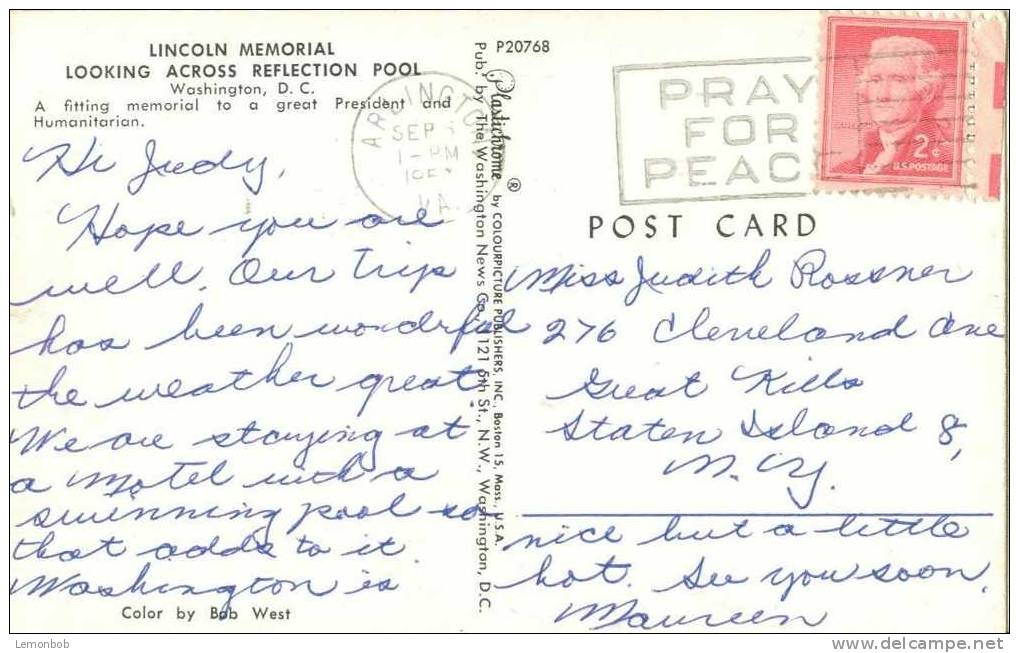 LINCOLN MEMORIAL
LOOKING ACROSS REFLECTION POOL
Washington, D. C.
A fitting memorial to a great President and
Humanitarian.
Hi Judy,
Hope you are
well. Our trip
has been wonderful
the weather great.
We are staying at
a Motel with a
swimming pool so
that adds to it.
Washington is
Color by Bob West
P20768
Plastichrome ® by COLOURPICTURE PUBLISHERS, INC., Boston 15, Mass., U.S.A.
Pub. by The Washington News Co., 1121 5th St., N.W., Washington, D.C.
ARLINGTON
SEP
1-PM
VA.
PRAY
FOR
PEAC
2¢
U.S. POSTAGE
POST CARD
Miss Judith Rossner
276 Cleveland Ave
Great Kills
Staten Island 8,
N. Y.
nice but a little
hot. See you soon,
Maureen
Lemonbob
www.delcampe.net